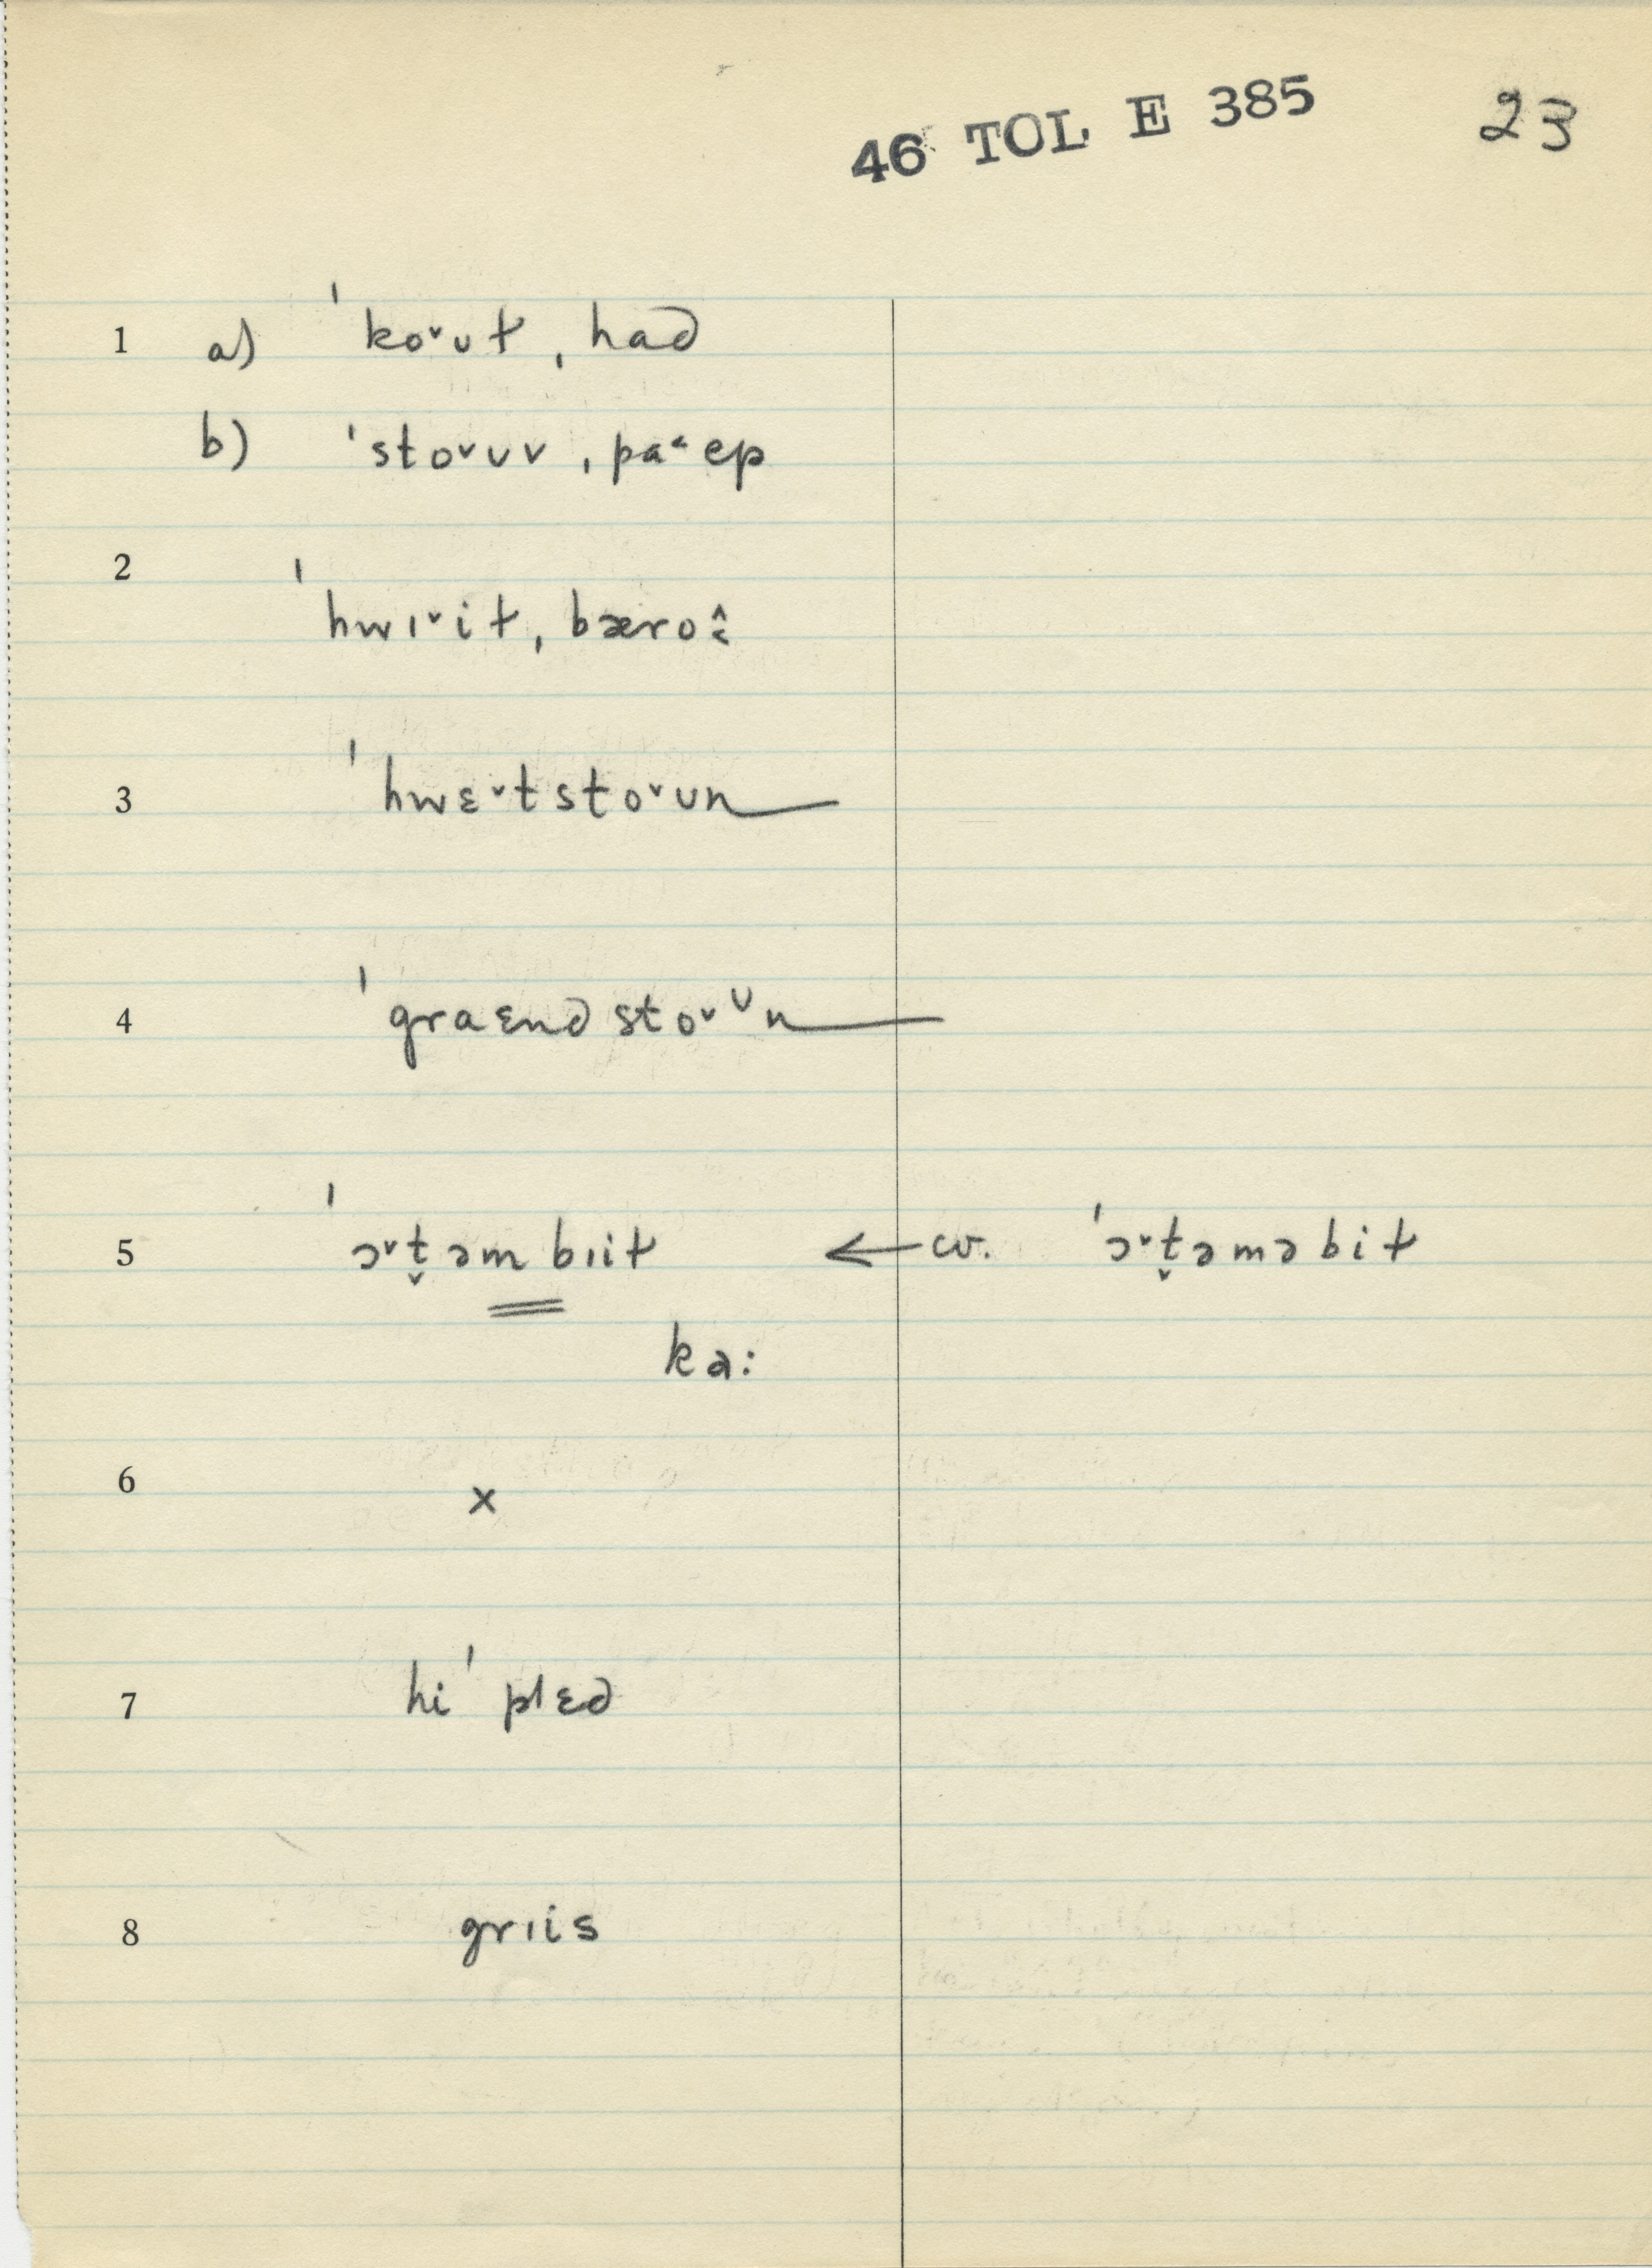 46 TOL E 385 23
1 a) ˈko˅ʊɫ ˌhad
b) ˈsto˅ʊv ˌpa˂ep
2 ˈhwɪ˅iɫ ˌbæro
3 ˈhwɛ˅tsto˅ʊn
4 ˈgraɛndsto˅ʊn
5 ˈɔ˅t̬əmbɪiɫ ← cv. ˈɔ˅t̬əməbiɫ
ka:
6 x
7 hiˈplɛd
8 grɪis